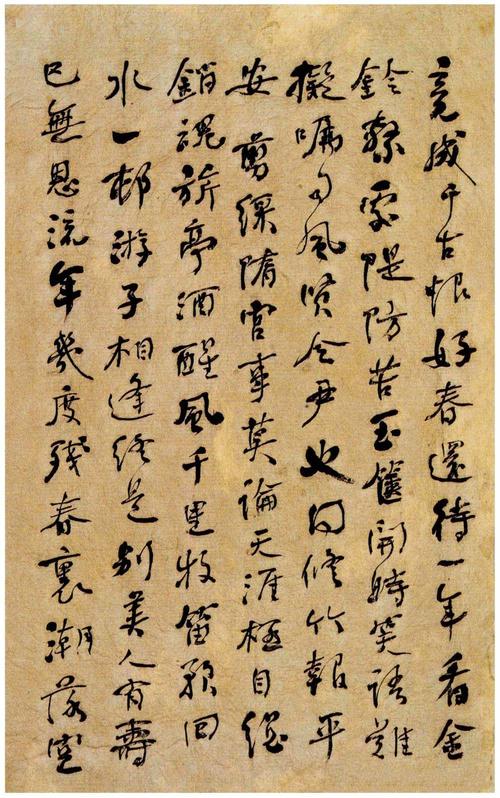 竟成千古恨好春還待一年看金
鈴繫處隄防苦玉篋開時笑語難
擬囑司風賢令尹也同修竹報平
安 剪綵隋宮事莫論天涯極目總
銷魂旗亭酒醒風千里牧笛歌回
水一邨游子相逢終是别美人有壽
已無恩流年幾度殘春裏潮落空